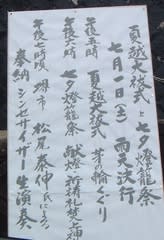 夏越大祓式と七夕燈籠祭
七月一日(金)雨天決行
午後五時 夏越大祓式 茅の輪くぐり
午後六時 七夕燈籠祭 献燈祈祷札焚上神事
午後七時頃 堺市 松尾泰伸氏による
奉納 シンセサイザー生演奏